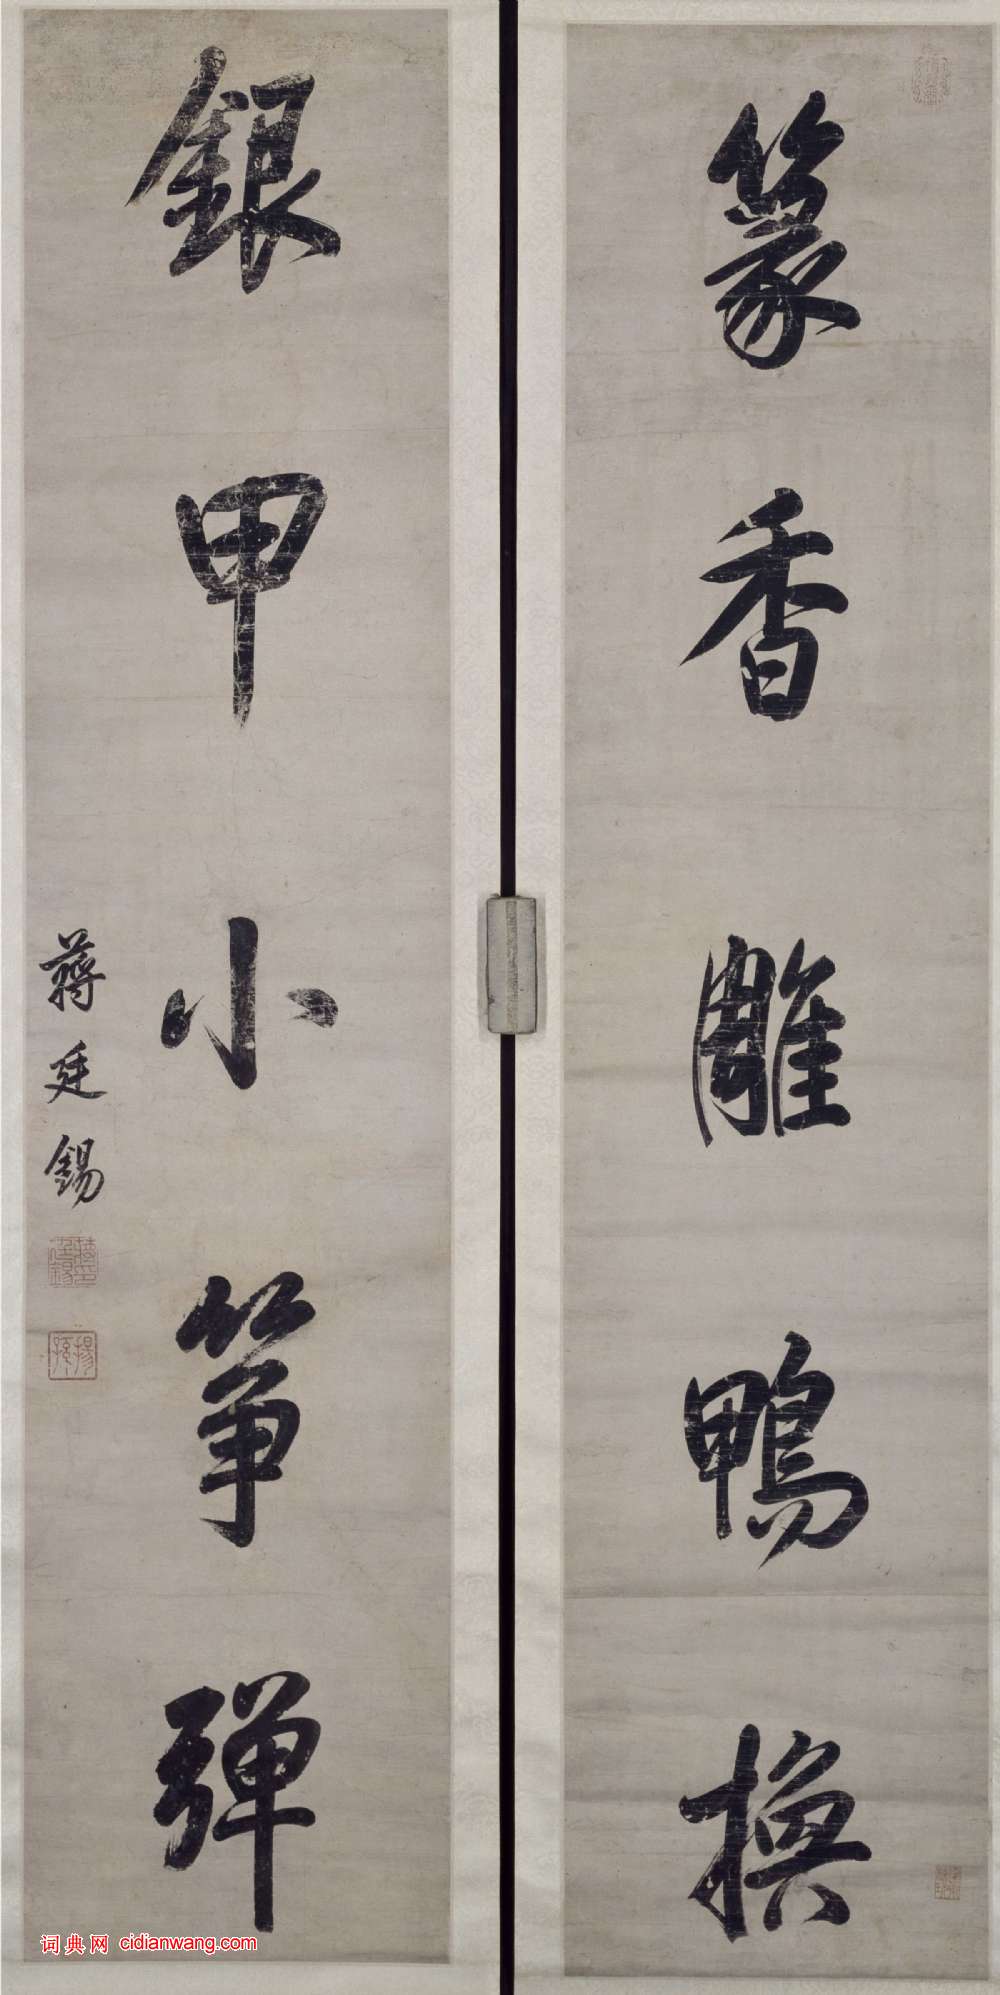 篆香雕鴨換
銀甲小箏彈
蔣廷錫
词典网 cidianwang.com